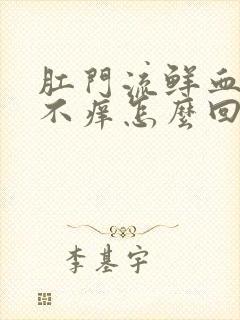 肛門流鮮血
不癢怎麼回
李基宇